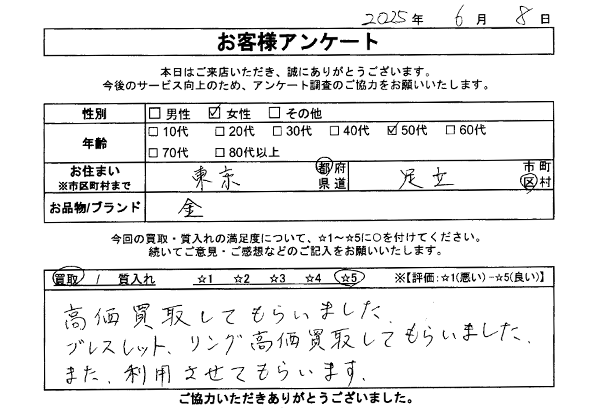 2025年 6月 8日
お客様アンケート
本日はご来店いただき、誠にありがとうございます。
今後のサービス向上のため、アンケート調査のご協力をお願いいたします。
性別 □男性 ☑女性 □その他
年齢 □10代 □20代 □30代 □40代 ☑50代 □60代
□70代 □80代以上
お住まい ※市区町村まで 東京 都府県道 足立 市町区村
お品物/ブランド 金
今回の買取・質入れの満足度について、☆1～☆5に○を付けてください。
続いてご意見・ご感想などのご記入をお願いいたします。
買取 / 質入れ ☆1 ☆2 ☆3 ☆4 ☆5 ※【評価:☆1(悪い)-☆5(良い)】
高価買取してもらいました。
ブレスレット、リング高価買取してもらいました、
また、利用させてもらいます。
ご協力いただきありがとうございました。